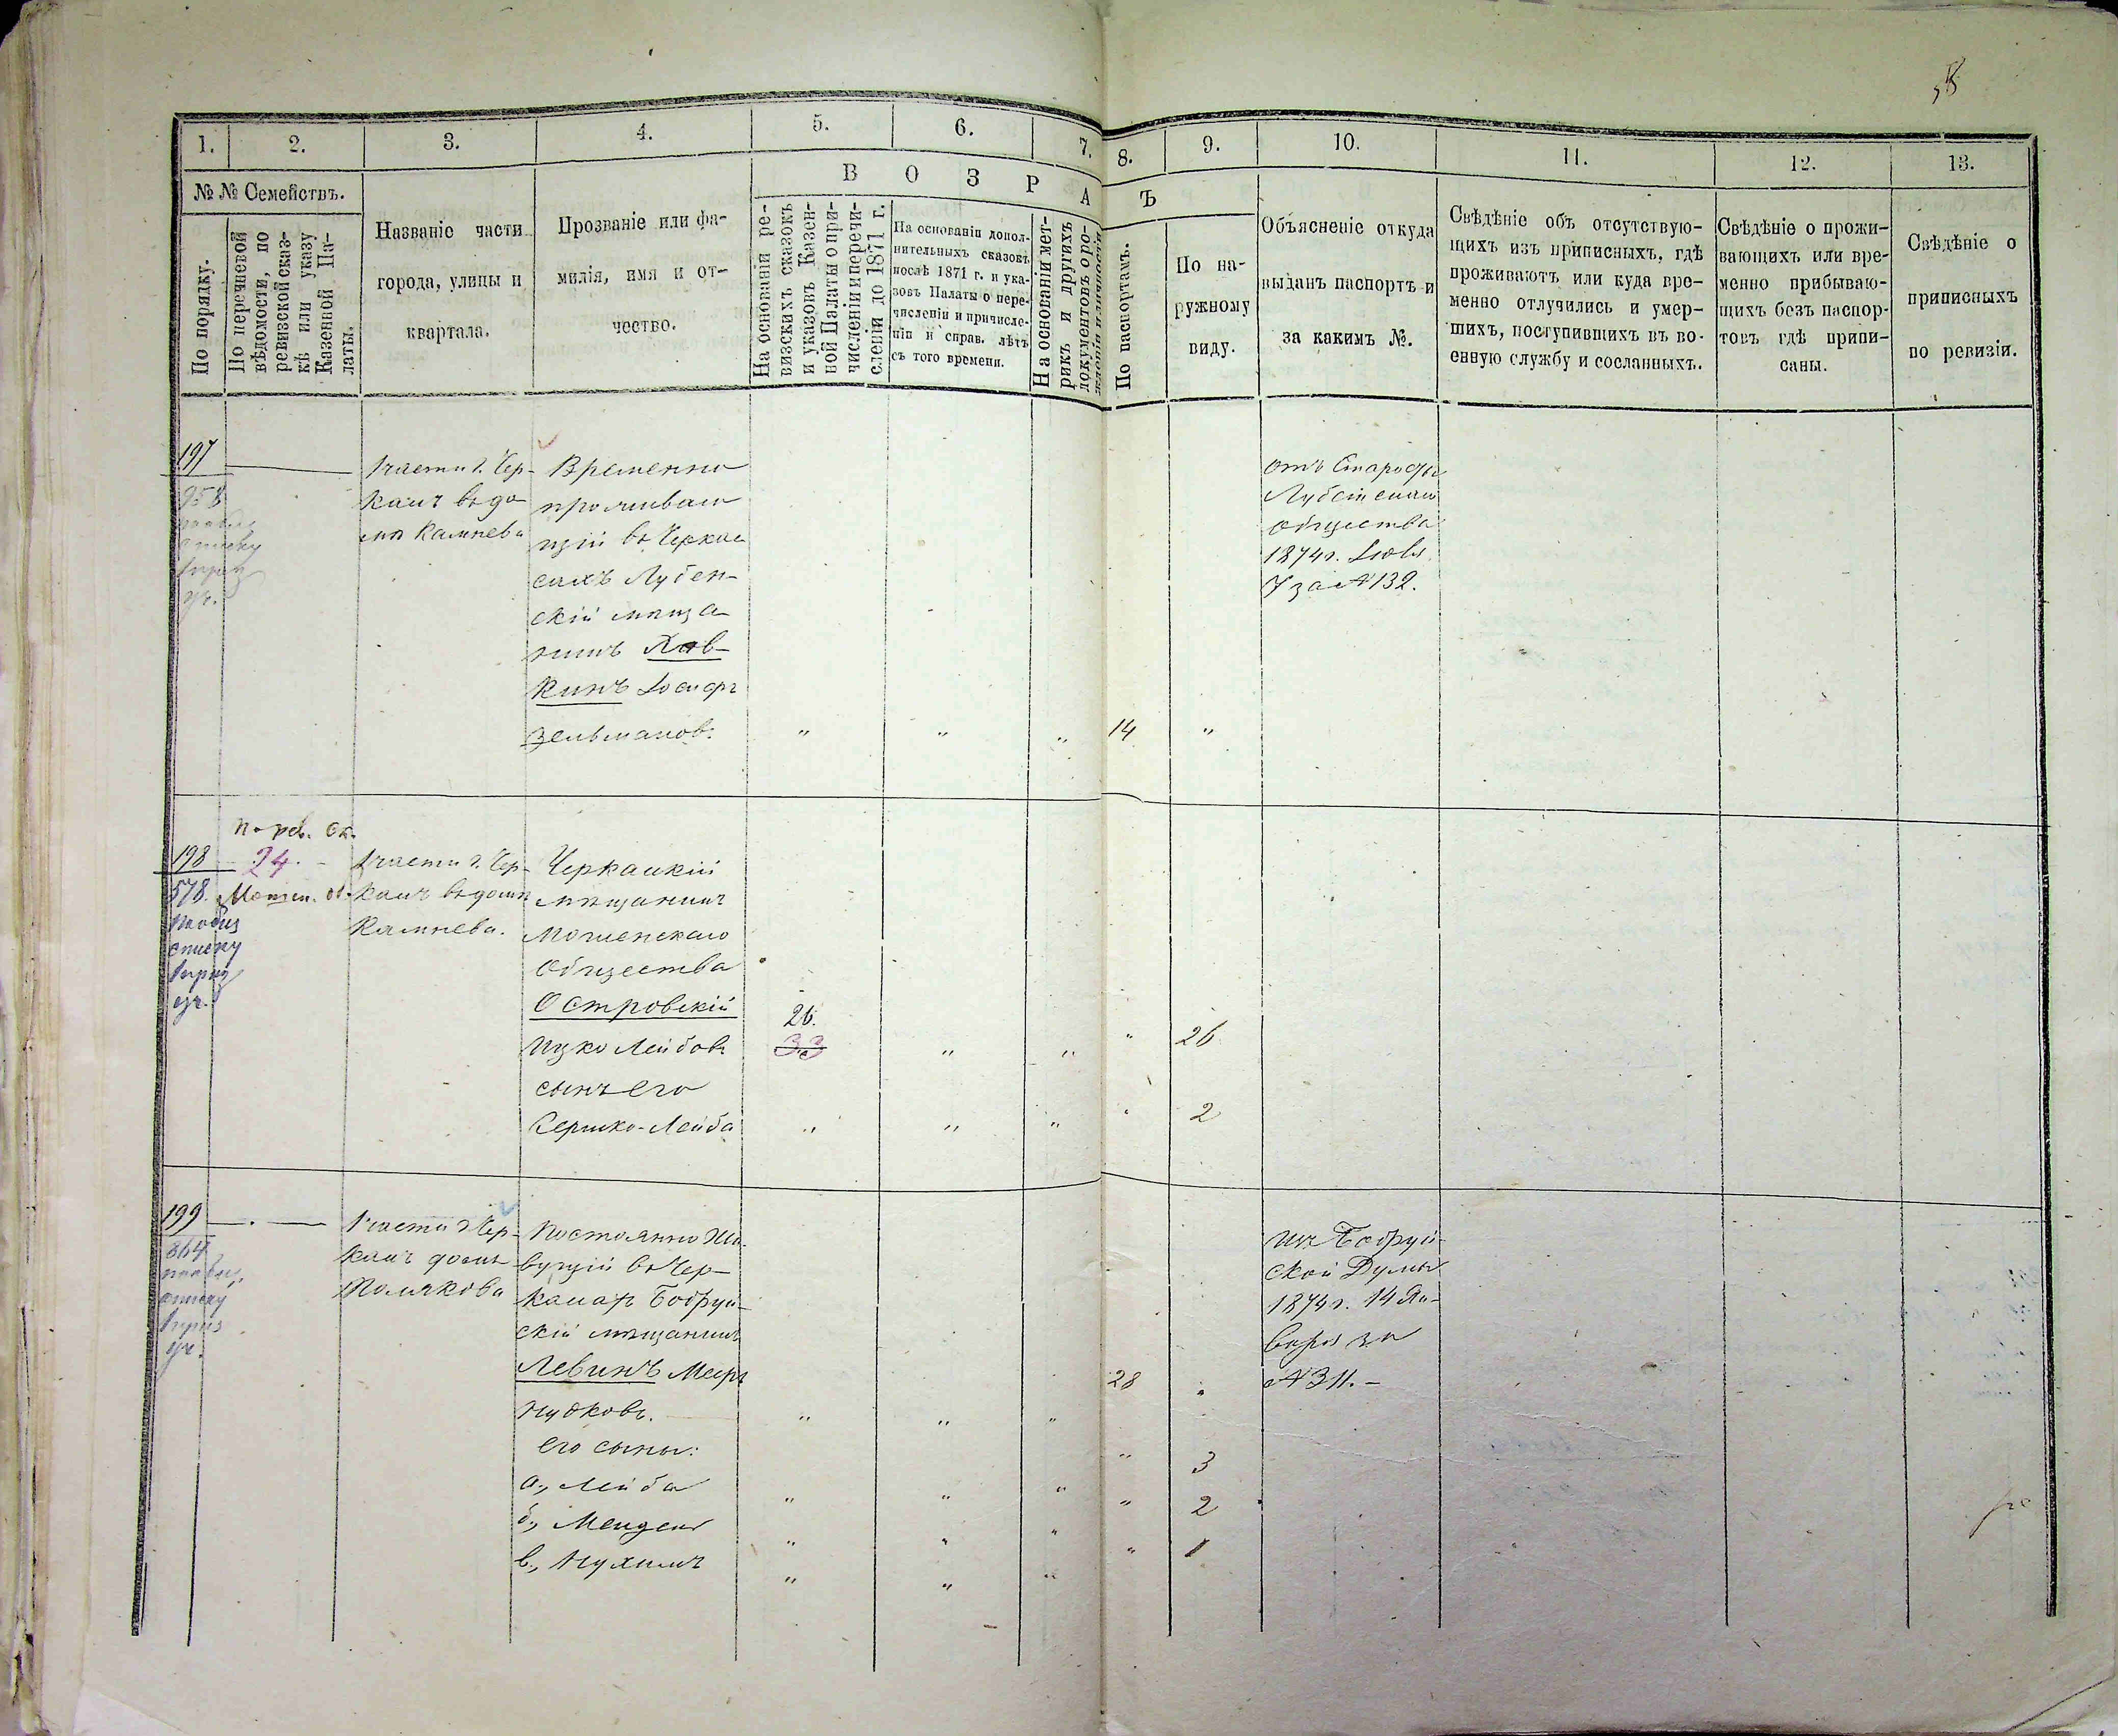 58
1.
2.
3.
4.
5.
6.
7.
8.
9.
10.
11.
12.
13.
№ № Семействъ.
По порядку.
По перечневой
вѣдомости, по
ревизской сказ-
кѣ или указу
Казенной Па-
латы.
Названіе части
города, улицы и
квартала.
Прозваніе или фа-
милія, имя и от-
чество.
В О З Р А
Ъ
На основаніи ре-
визскихъ сказокъ
и указовъ Казен-
ной Палаты о при-
численіи и перечи-
сленіи до 1871 г.
На основаніи допол-
нительныхъ сказокъ
послѣ 1871 г. и ука-
зовъ Палаты о пере-
численіи и причисле-
ніи и справ. лѣтъ
съ того времени.
На основаніи мет-
рикъ и другихъ
документовъ о ро-
жденіи и личности
По паспортамъ.
По на-
ружному
виду.
Объясненіе откуда
выданъ паспортъ и
за какимъ №.
Свѣдѣніе объ отсутствую-
щихъ изъ приписныхъ, гдѣ
проживаютъ или куда вре-
менно отлучились и умер-
шихъ, поступившихъ въ во-
енную службу и сосланныхъ.
Свѣдѣніе о прожи-
вающихъ или вре-
менно прибываю-
щихъ безъ паспор-
товъ гдѣ припи-
саны.
Свѣдѣніе о
приписныхъ
по ревизіи.
197
958
списку
1 части г. Чер-
касъ въ до
мѣ Камнева
Временно
проживаю
щій въ Черкас
сахъ Лубен-
скій мѣща
нинъ Хав-
кинъ Іосифъ
Зельманов.
" " " 14 "
отъ Старосты
общества
1874 г. Іюля
7 за № 132.
По рев. ск.
198 24.
578. Мошен. об.
списку
1 части г. Чер-
касъ въ домѣ
Камнева.
Черкаскій
мѣщанинъ
Мошенскаго
Общества
Островскій
Ицко Лейбовъ
сынъ его
Гершко-Лейба
26.
33 " " " 26
" " " " 2
199
864
списку
1 части г. Чер-
касъ домъ
Полякова
Постоянно жи-
вущій въ Чер-
касахъ Бобруй-
скій мѣщанинъ
Левинъ Мееръ
его сыны:
а., Лейба
б., Мендель
в., Нухимъ
" " " 28 "
" " " " 3
" " " " 2
" " " " 1
изъ Бобруй-
ской Думы
1874 г. 14 Ян-
варя за
№ 311.-